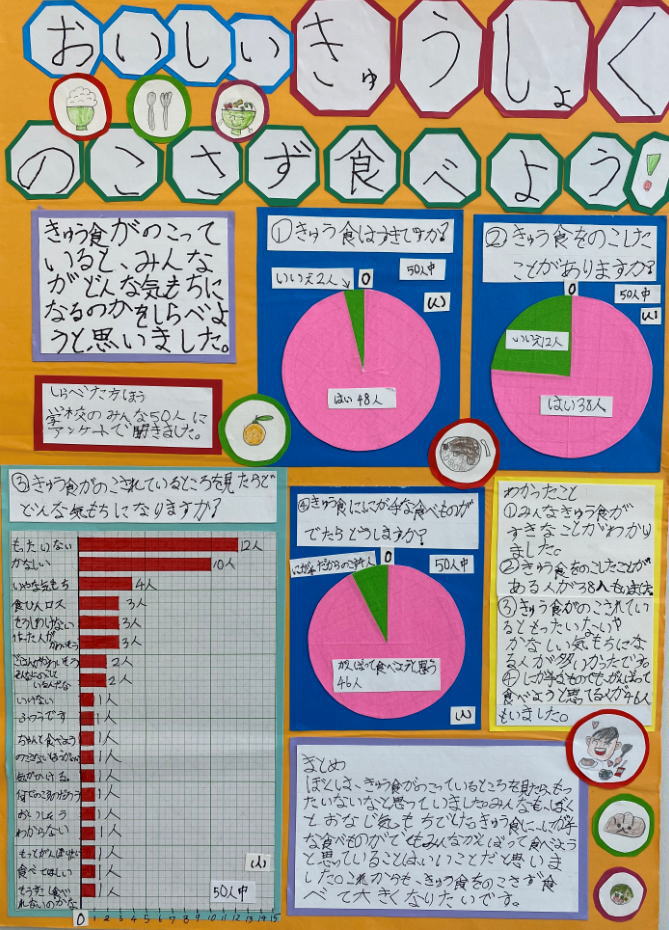 おいしいきゅうしょく
のこさず食べよう!
きゅう食がのこって
いると、みんな
がどんな気もちに
なるのかをしらべよ
うと思いました。
しらべた方ほう
学校のみんな50人に
アンケートで聞きました。
①きゅう食はすきですか?
50人中
いいえ2人
0
(人)
はい48人
②きゅう食をのこした
ことがありますか?
50人中
0
(人)
いいえ12人
はい38人
③きゅう食がのこされているところを見たらど
どんな気もちになりますか?
もったいない 12人
かなしい 10人
いやな気もち 4人
食ひんロス 3人
もうしわけない 3人
作った人が
かわいそう 3人
ごはんがかわいそう 2人
2人
いけない 1人
ふつうです 1人
ちゃんと食べよう 1人
1人
1人
1人
1人
わからない 1人
1人
食べてほしい 1人
もう少し食べ
れないのかな 1人
(人)
50人中
0 1 2 3 4 5 6 7 8 9 10 11 12 13 14 15
④きゅう食ににが手な食べものが
でたらどうしますか?
50人中
0
にが手だからのこす4人
がんばって食べようと思う
46人
(人)
わかったこと
①みんなきゅう食が
すきなことがわかり
ました。
②きゅう食をのこしたことが
ある人が38人もいました
③きゅう食がのこされてい
るともったいないや
かなしい気もちにな
る人が多いかったです。
④にが手なものでも、がんばって
食べようと思てる人が46人
もいました。
まとめ
ぼくは、きゅう食がのこっているところを見たら、もっ
たいないなと思っていました。みんなも、ぼく
とおなじ気もちでした。きゅう食に、にが手
な食べものがでてもみんながんばって食べよう
と思っていることはいいことだと思いま
した。これからも、きゅう食をのこさず食
べて大きくなりたいです。